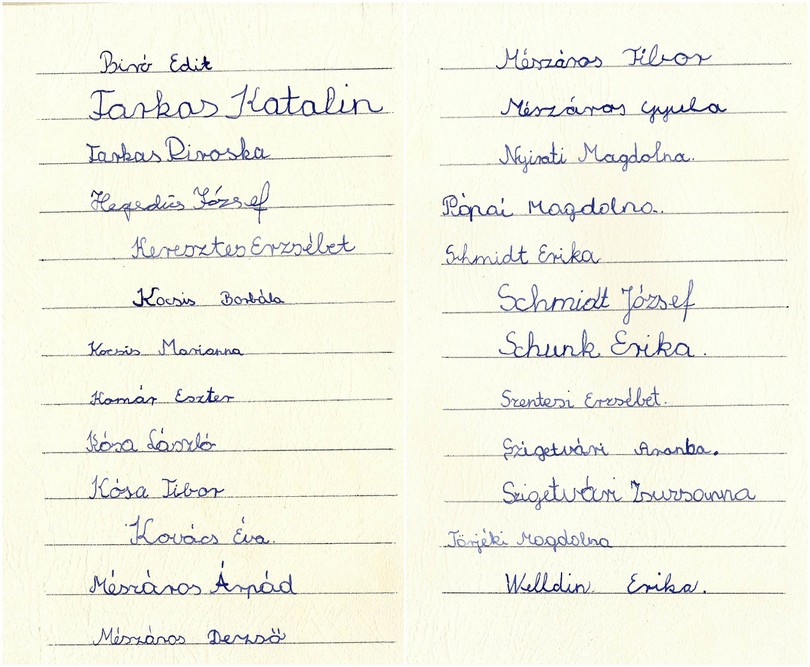 Biró Edit
Farkas Katalin
Farkas Piroska
Hegedüs József
Keresztes Erzsébet
Kocsis Borbála
Kocsis Marianna
Komár Eszter
Kósa László
Kósa Tibor
Kovács Éva.
Mészáros Árpád
Mészáros Dezső
Mészáros Tibor
Mészáros Gyula
Nyirati Magdolna.
Pópai Magdolna.
Schmidt Erika
Schmidt József
Schunk Erika.
Szentesi Erzsébet.
Szigetvári Aranka.
Szigetvári Zsuzsanna
Törjéki Magdolna
Welldin Erika.